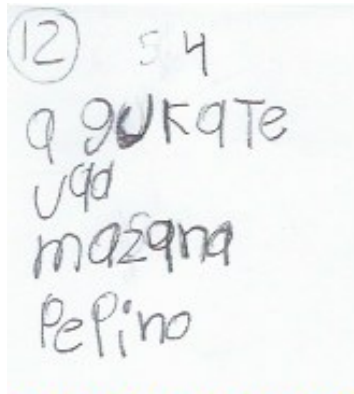 12 5 4
agukate
uqa
mazana
Pepino